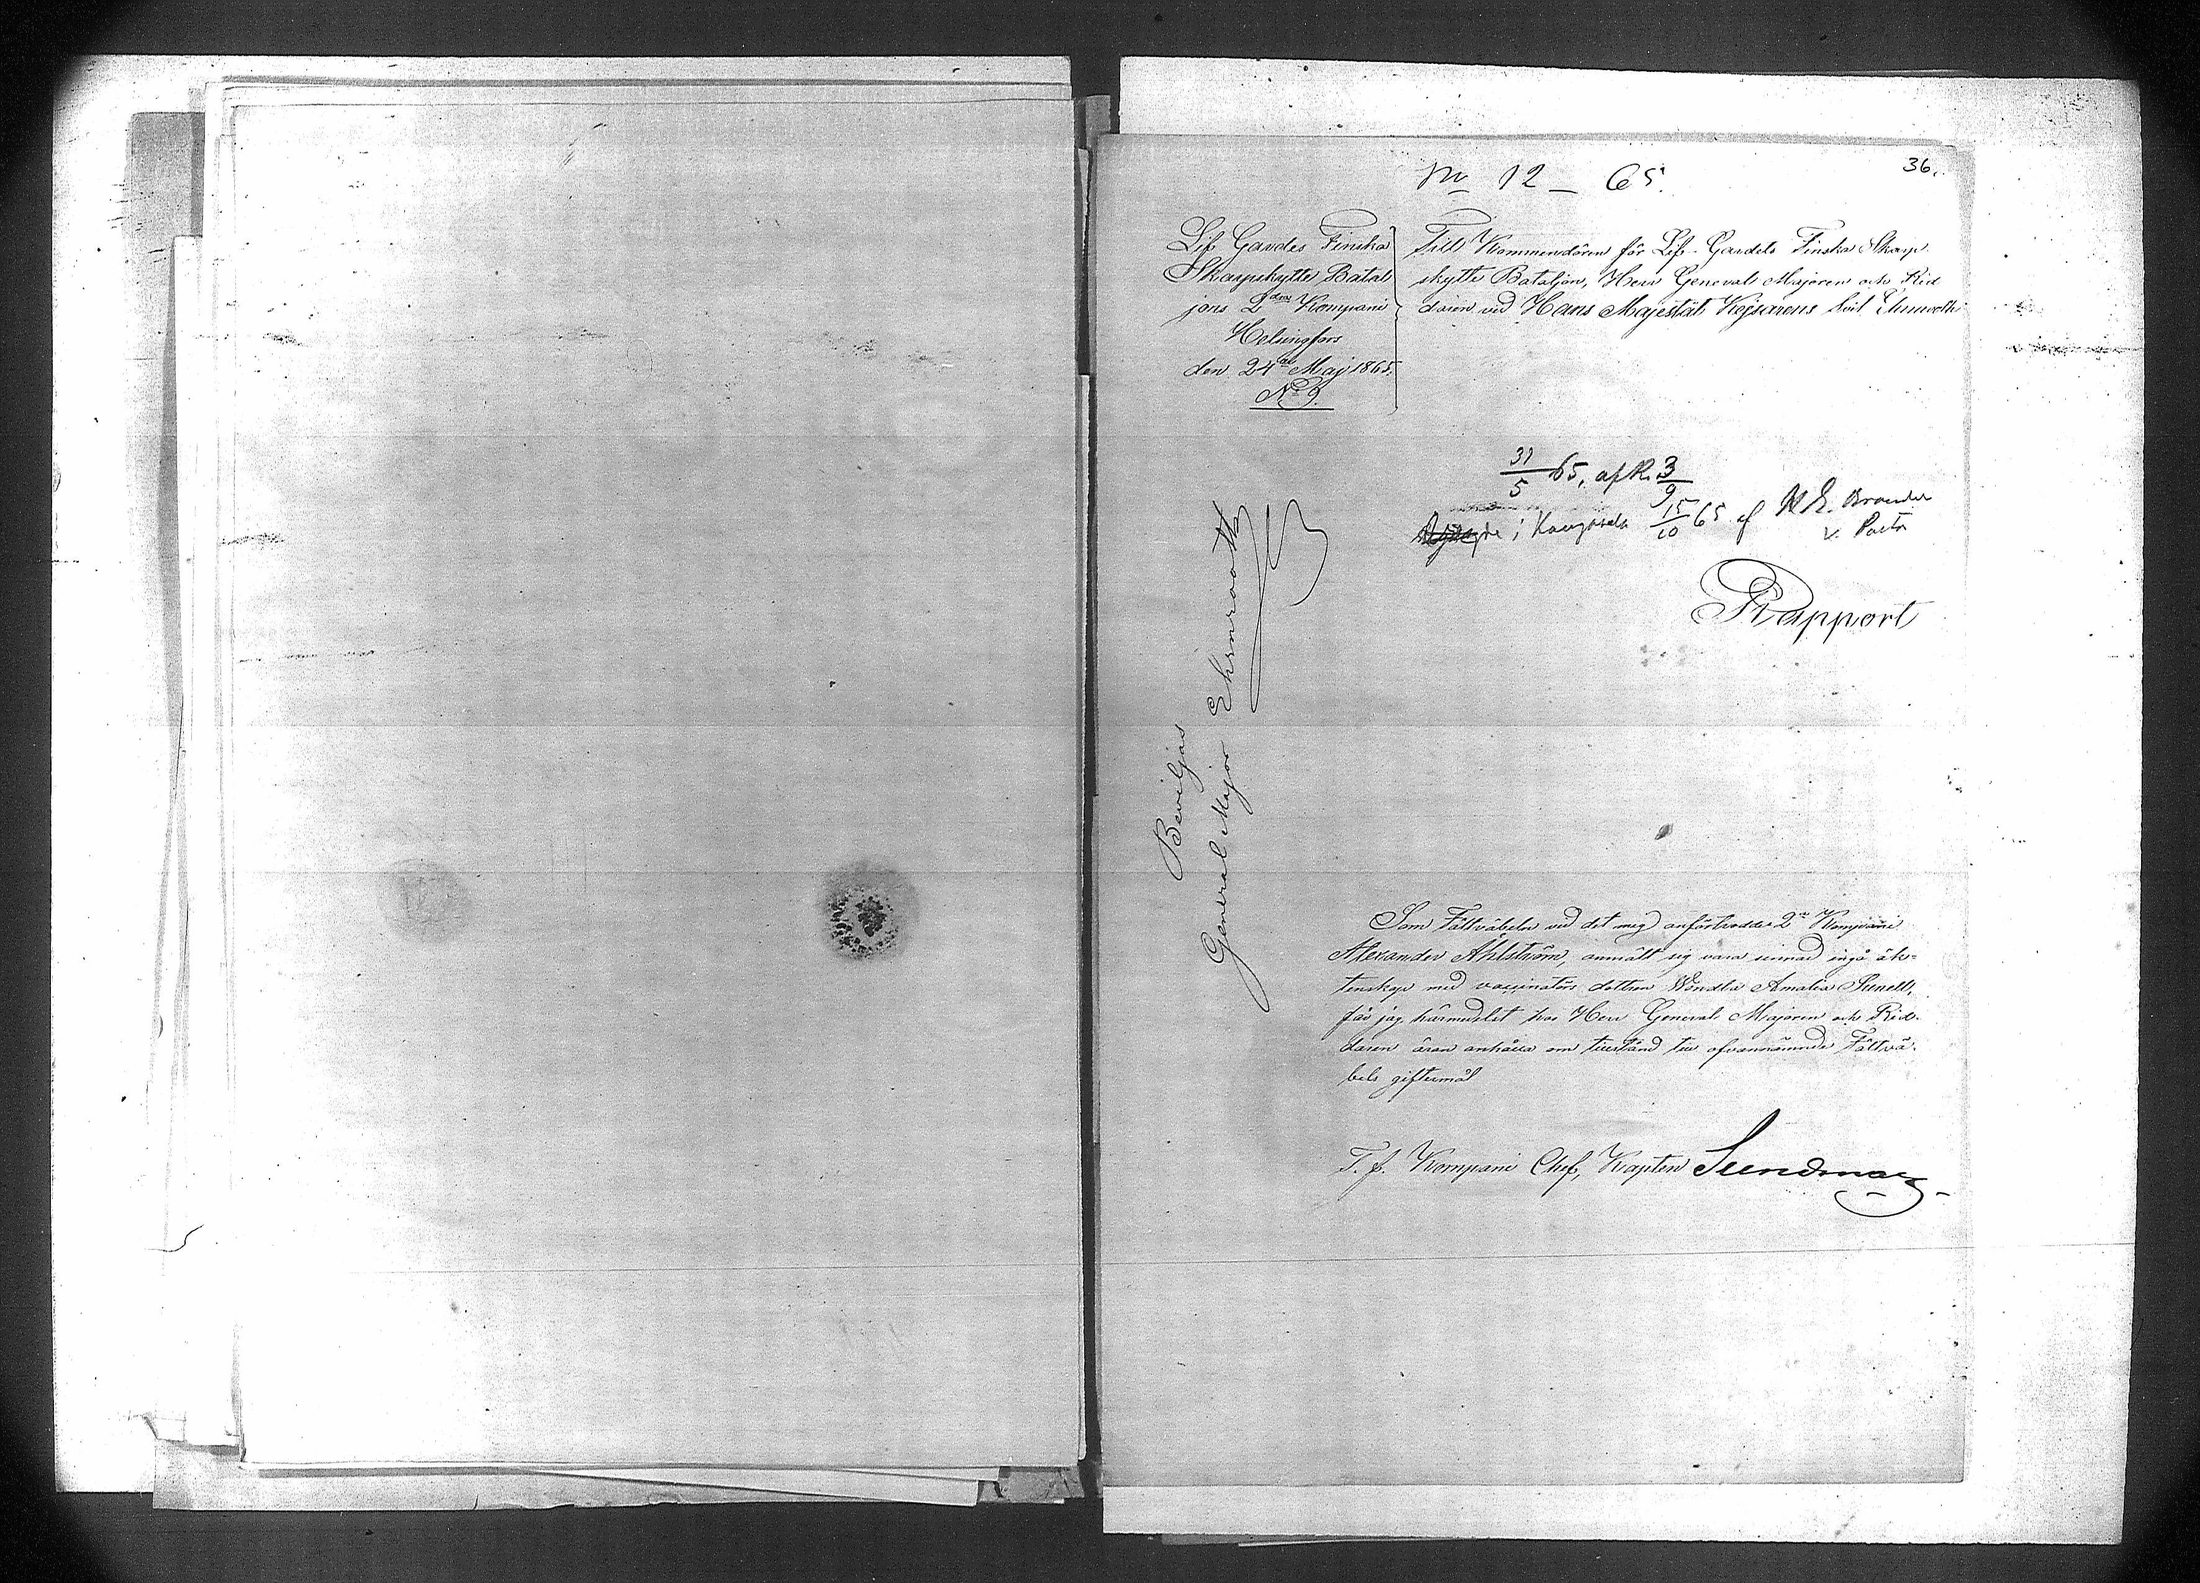 36.
No 12 – 65.
Lif Gardes Finska
Skarpskytte Batal
jons 2dra Kompani
Helsingfors
den 24de Maj 1865.
No 9.
Till Kommendören för Lif-Gardets Finska Skarp
skytte Bataljon, Herr General Majoren och Rid
daren vid Hans Majestät Kejsarens Svit Ehrnrooth
31/5 65, afk. 3/9
i Kangasala 15/10 65 af K. E. Brander
v. Pastor
Rapport
Beviljas
General Major Ehrnrooth
Som Fältväbeln vid det mig anförtrodde 2ra Kompani
Alexander Åhlström, anmält sig vara sinnad ingå äk-
tenskap med vaccinatörs dottren Wendla Amalia
får jag härmedelst hos Herr General Majoren och Rid-
daren äran anhålla om tillstånd till ofvannämnde Fältvä-
bels giftermål
T. f. Kompani Chef, Kapten Sundman